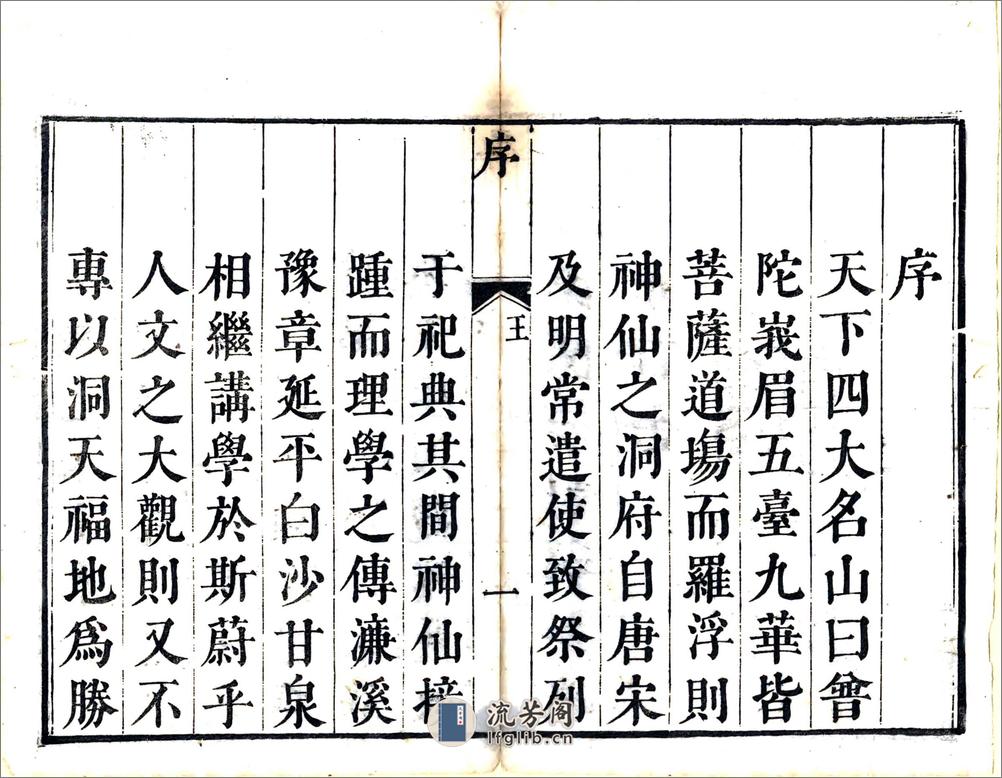 序
天下四大名山曰普
陀峩眉五臺九華皆
菩薩道場而羅浮則
神仙之洞府自唐宋
及明常遣使致祭列
序
王
一
于祀典其間神仙接
踵而理學之傳濂溪
豫章延平白沙甘泉
相繼講學於斯蔚乎
人文之大觀則又不
專以洞天福地爲勝
流芳阁
lfglib.cn